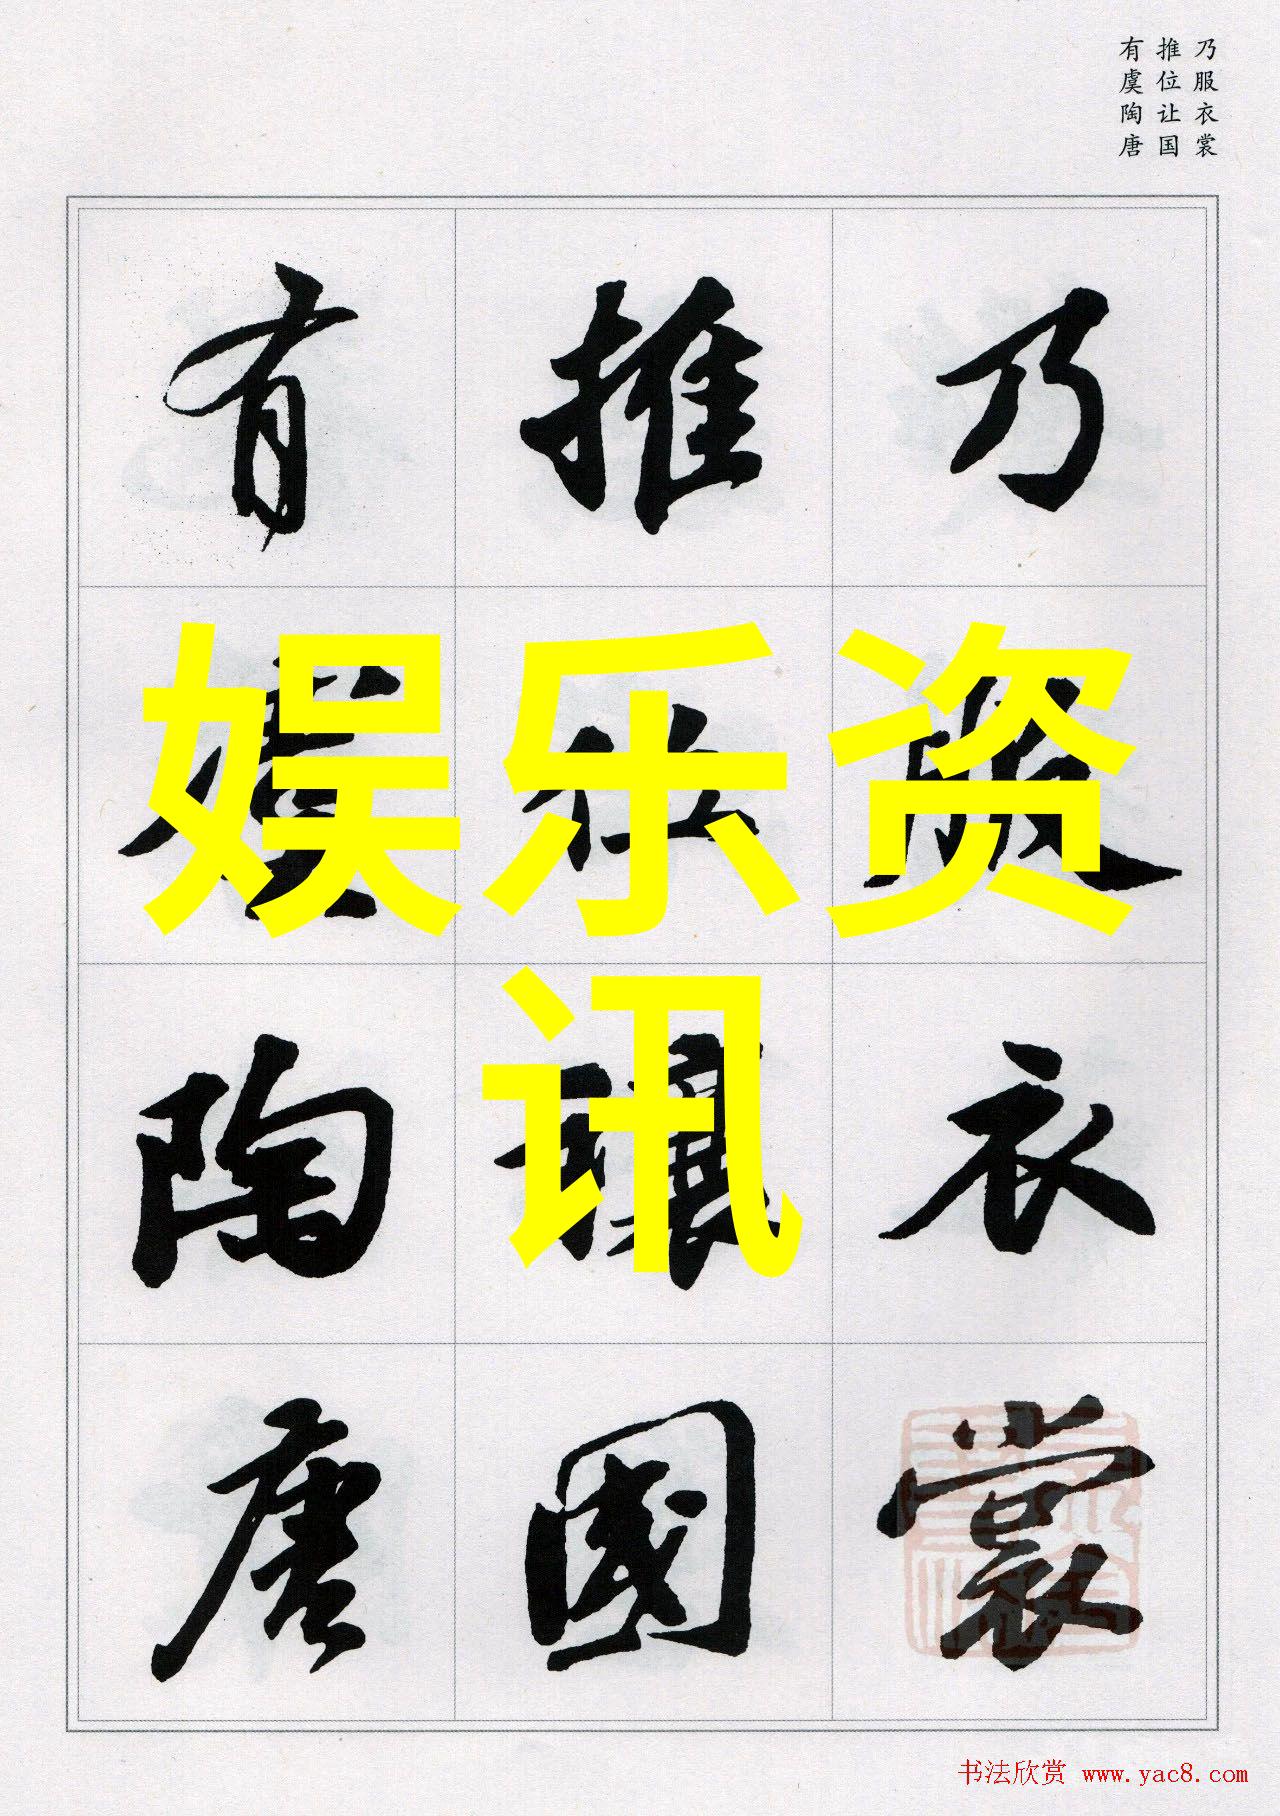 乃服衣裳
推位让国
有虞陶唐
乃服衣裳
推位讓國
有虞陶唐
娱乐资
讯
书法欣赏 www.yac8.com